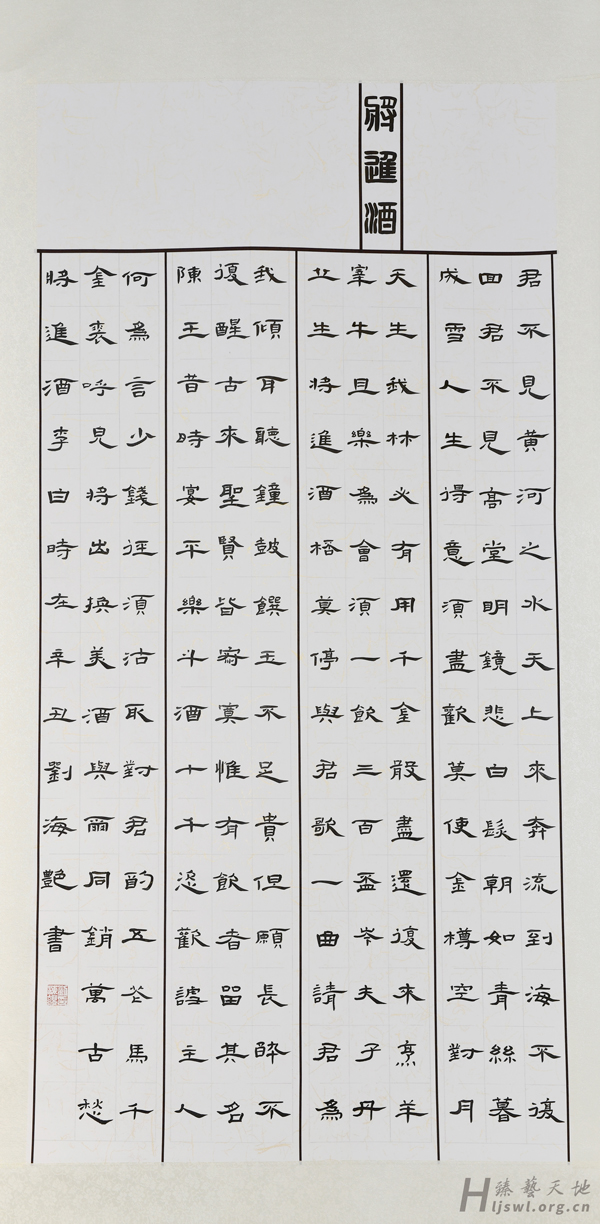 將進酒
君不見黃河之水天上來奔流到海不復
回君不見高堂明鏡悲白髮朝如青絲暮
成雪人生得意須盡歡莫使金樽空對月
天生我材必有用千金散盡還復來烹羊
宰牛且樂為會須一飲三百盃岑夫子丹
丘生將進酒桮莫停與君歌一曲請君為
我傾耳聽鐘鼓饌玉不足貴但願長醉不
復醒古來聖賢皆寂寞惟有飲者留其名
陳王昔時宴平樂斗酒十千恣歡謔主人
何為言少錢徑須沽取對君酌五花馬千
金裘呼兒將出換美酒與爾同銷萬古愁
將進酒李白時在辛丑劉海艷書
臻藝天地
Hljswl.org.cn